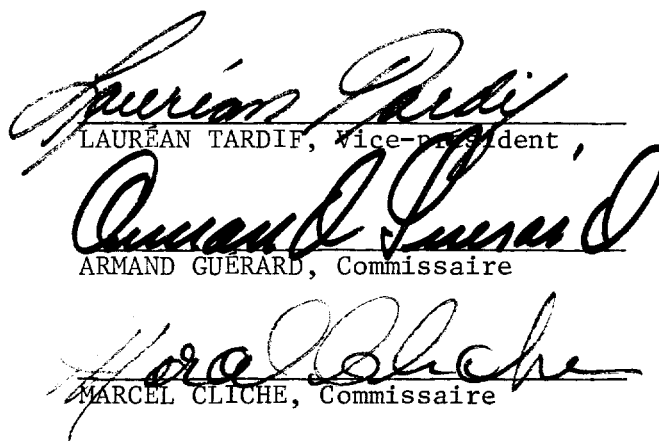 Lauréan Tardif
LAURÉAN TARDIF, Vice-président
Armand Guérard
ARMAND GUÉRARD, Commissaire
Marcel Cliche
MARCEL CLICHE, Commissaire